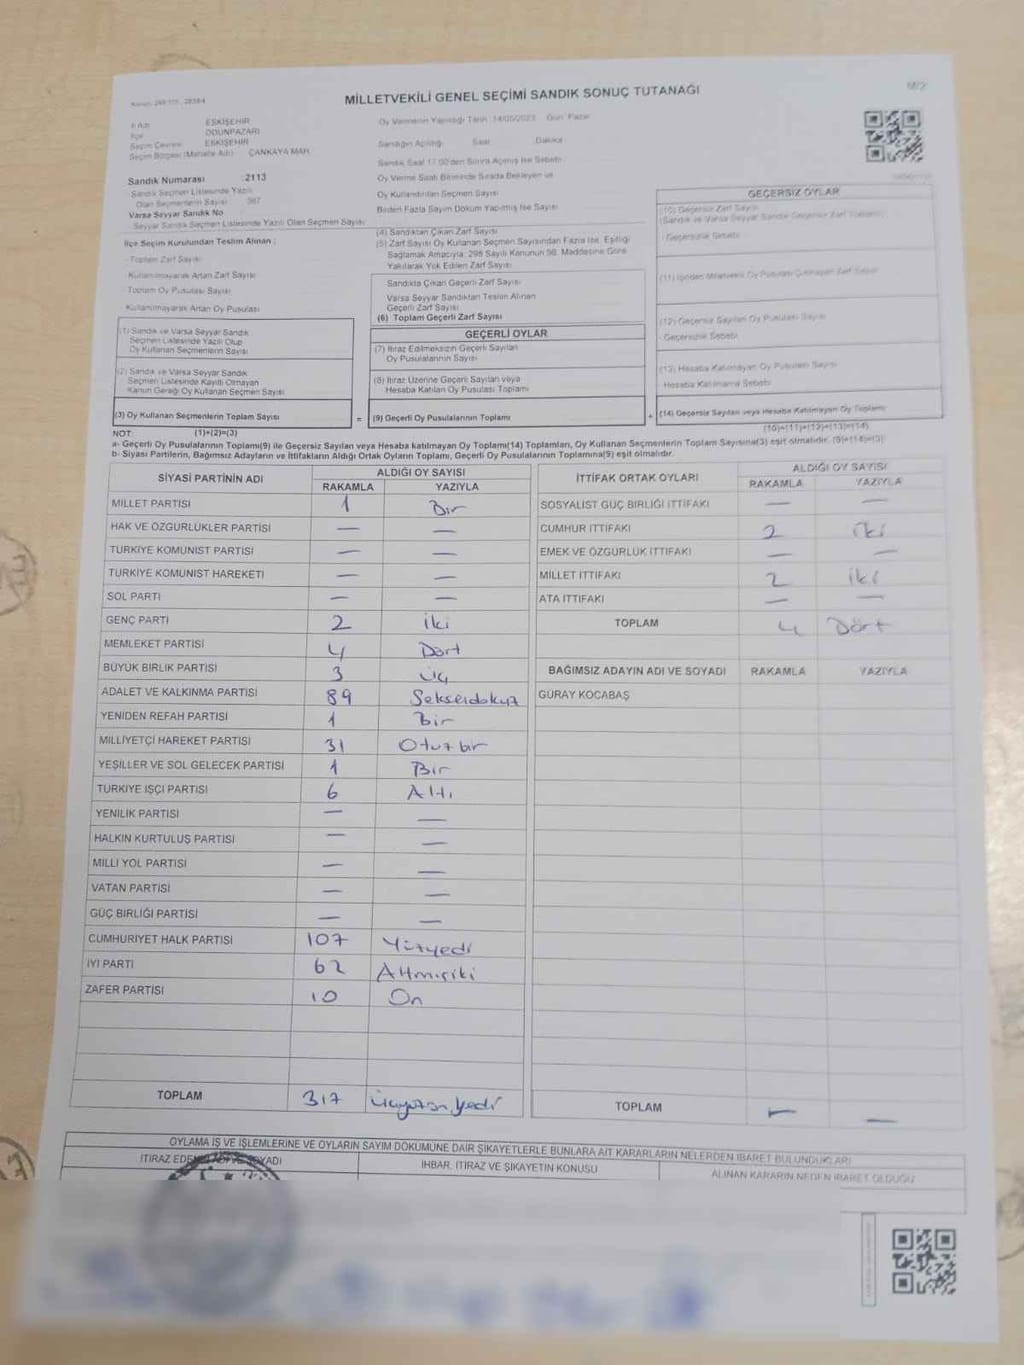 MİLLETVEKİLİ GENEL SEÇİMİ SANDIK SONUÇ TUTANAĞI
M/2
İl Adı ESKİŞEHİR
İlçe ODUNPAZARI
Seçim Çevresi ESKİŞEHİR
Seçim Bölgesi (Mahalle Adı) ÇANKAYA MAH.
Sandık Numarası 2113
Sandık Seçmen Listesinde Yazılı
Olan Seçmenlerin Sayısı 367
Varsa Seyyar Sandık No
Seyyar Sandık Seçmen Listesinde Yazılı Olan Seçmen Sayısı
İlçe Seçim Kurulundan Teslim Alınan ;
- Toplam Zarf Sayısı
Kullanılmayarak Artan Zarf Sayısı
Toplam Oy Pusulası Sayısı
- Kullanılmayarak Artan Oy Pusulası
(1) Sandık ve Varsa Seyyar Sandık
Seçmen Listesinde Yazılı Olup
Oy Kullanan Seçmenlerin Sayısı
(2) Sandık ve Varsa Seyyar Sandık
Seçmen Listesinde Kayıtlı Olmayan
Kanun Gereği Oy Kullanan Seçmen Sayısı
(3) Oy Kullanan Seçmenlerin Toplam Sayısı
Oy Vermenin Yapıldığı Tarih :14/05/2023 Gün: Pazar
Sandığın Açıldığı Saat Dakika
Sandık Saat 17.00'den Sonra Açılmış İse Sebebi
Oy Verme Saati Bitiminde Sırada Bekleyen ve
Oy Kullandırılan Seçmen Sayısı
Birden Fazla Sayım Döküm Yapılmış İse Sayısı
(4) Sandıktan Çıkan Zarf Sayısı
(5) Zarf Sayısı Oy Kullanan Seçmen Sayısından Fazla İse, Eşitliği
Sağlamak Amacıyla; 298 Sayılı Kanunun 98. Maddesine Göre
Yakılarak Yok Edilen Zarf Sayısı
Sandıkta Çıkan Geçerli Zarf Sayısı
Varsa Seyyar Sandıktan Teslim Alınan
Geçerli Zarf Sayısı
(6) Toplam Geçerli Zarf Sayısı
GEÇERLİ OYLAR
(7) İtiraz Edilmeksizin Geçerli Sayılan
Oy Pusulalarının Sayısı
(8) İtiraz Üzerine Geçerli Sayılan veya
Hesaba Katılan Oy Pusulası Toplamı
= (9) Geçerli Oy Pusulalarının Toplamı
GEÇERSİZ OYLAR
(10) Geçersiz Zarf Sayısı
- Geçersizlik Sebebi
(12) Geçersiz Sayılan Oy Pusulası Sayısı
- Geçersizlik Sebebi
(13) Hesaba Katılmayan Oy Pusulası Sayısı
Hesaba Katılmama Sebebi
+ (14) Geçersiz Sayılan veya Hesaba Katılmayan Oy Toplamı
NOT: (1)+(2)=(3) (10)+(11)+(12)+(13)=(14)
a- Geçerli Oy Pusulalarının Toplamı(9) ile Geçersiz Sayılan veya Hesaba katılmayan Oy Toplamı(14) Toplamları, Oy Kullanan Seçmenlerin Toplam Sayısına(3) eşit olmalıdır. (9)+(14)=(3)
b- Siyasi Partilerin, Bağımsız Adayların ve İttifakların Aldığı Ortak Oyların Toplamı, Geçerli Oy Pusulalarının Toplamına(9) eşit olmalıdır.
SİYASİ PARTİNİN ADI ALDIĞI OY SAYISI
RAKAMLA YAZIYLA
MİLLET PARTİSİ 1 Bir
HAK VE ÖZGÜRLÜKLER PARTİSİ — —
TÜRKİYE KOMÜNİST PARTİSİ — —
TÜRKİYE KOMÜNİST HAREKETİ — —
SOL PARTİ — —
GENÇ PARTİ 2 İki
MEMLEKET PARTİSİ 4 Dört
BÜYÜK BİRLİK PARTİSİ 3 Üç
ADALET VE KALKINMA PARTİSİ 89 Seksendokuz
YENİDEN REFAH PARTİSİ 1 Bir
MİLLİYETÇİ HAREKET PARTİSİ 31 Otuzbir
YEŞİLLER VE SOL GELECEK PARTİSİ 1 Bir
TÜRKİYE İŞÇİ PARTİSİ 6 Altı
YENİLİK PARTİSİ — —
HALKIN KURTULUŞ PARTİSİ — —
MİLLİ YOL PARTİSİ — —
VATAN PARTİSİ — —
GÜÇ BİRLİĞİ PARTİSİ — —
CUMHURİYET HALK PARTİSİ 107 Yüzyedi
İYİ PARTİ 62 Altmışiki
ZAFER PARTİSİ 10 On
TOPLAM 317 Üçyüzon yedi
İTTİFAK ORTAK OYLARI ALDIĞI OY SAYISI
RAKAMLA YAZIYLA
SOSYALİST GÜÇ BİRLİĞİ İTTİFAKI — —
CUMHUR İTTİFAKI 2 İki
EMEK VE ÖZGÜRLÜK İTTİFAKI — —
MİLLET İTTİFAKI 2 İki
ATA İTTİFAKI — —
TOPLAM 4 Dört
BAĞIMSIZ ADAYIN ADI VE SOYADI RAKAMLA YAZIYLA
GÜRAY KOCABAŞ
TOPLAM — —
OYLAMA İŞ VE İŞLEMLERİNE VE OYLARIN SAYIM DÖKÜMÜNE DAİR ŞİKAYETLERLE BUNLARA AİT KARARLARIN NELERDEN İBARET BULUNDUKLARI
İTİRAZ EDENİN ADI VE SOYADI İHBAR, İTİRAZ VE ŞİKAYETİN KONUSU ALINAN KARARIN NEDEN İBARET OLDUĞU